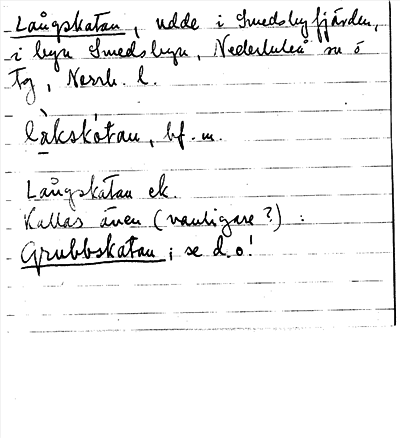 Långskatan, udde i Smedsbyfjärden,
i byn Smedsbyn, Nederluleå sn o
tg, Norrb. l.
làkskàtan, bf. m.
Långskatan ek.
Kallas även (vanligare?) :
Grubbskatan; se d.o!